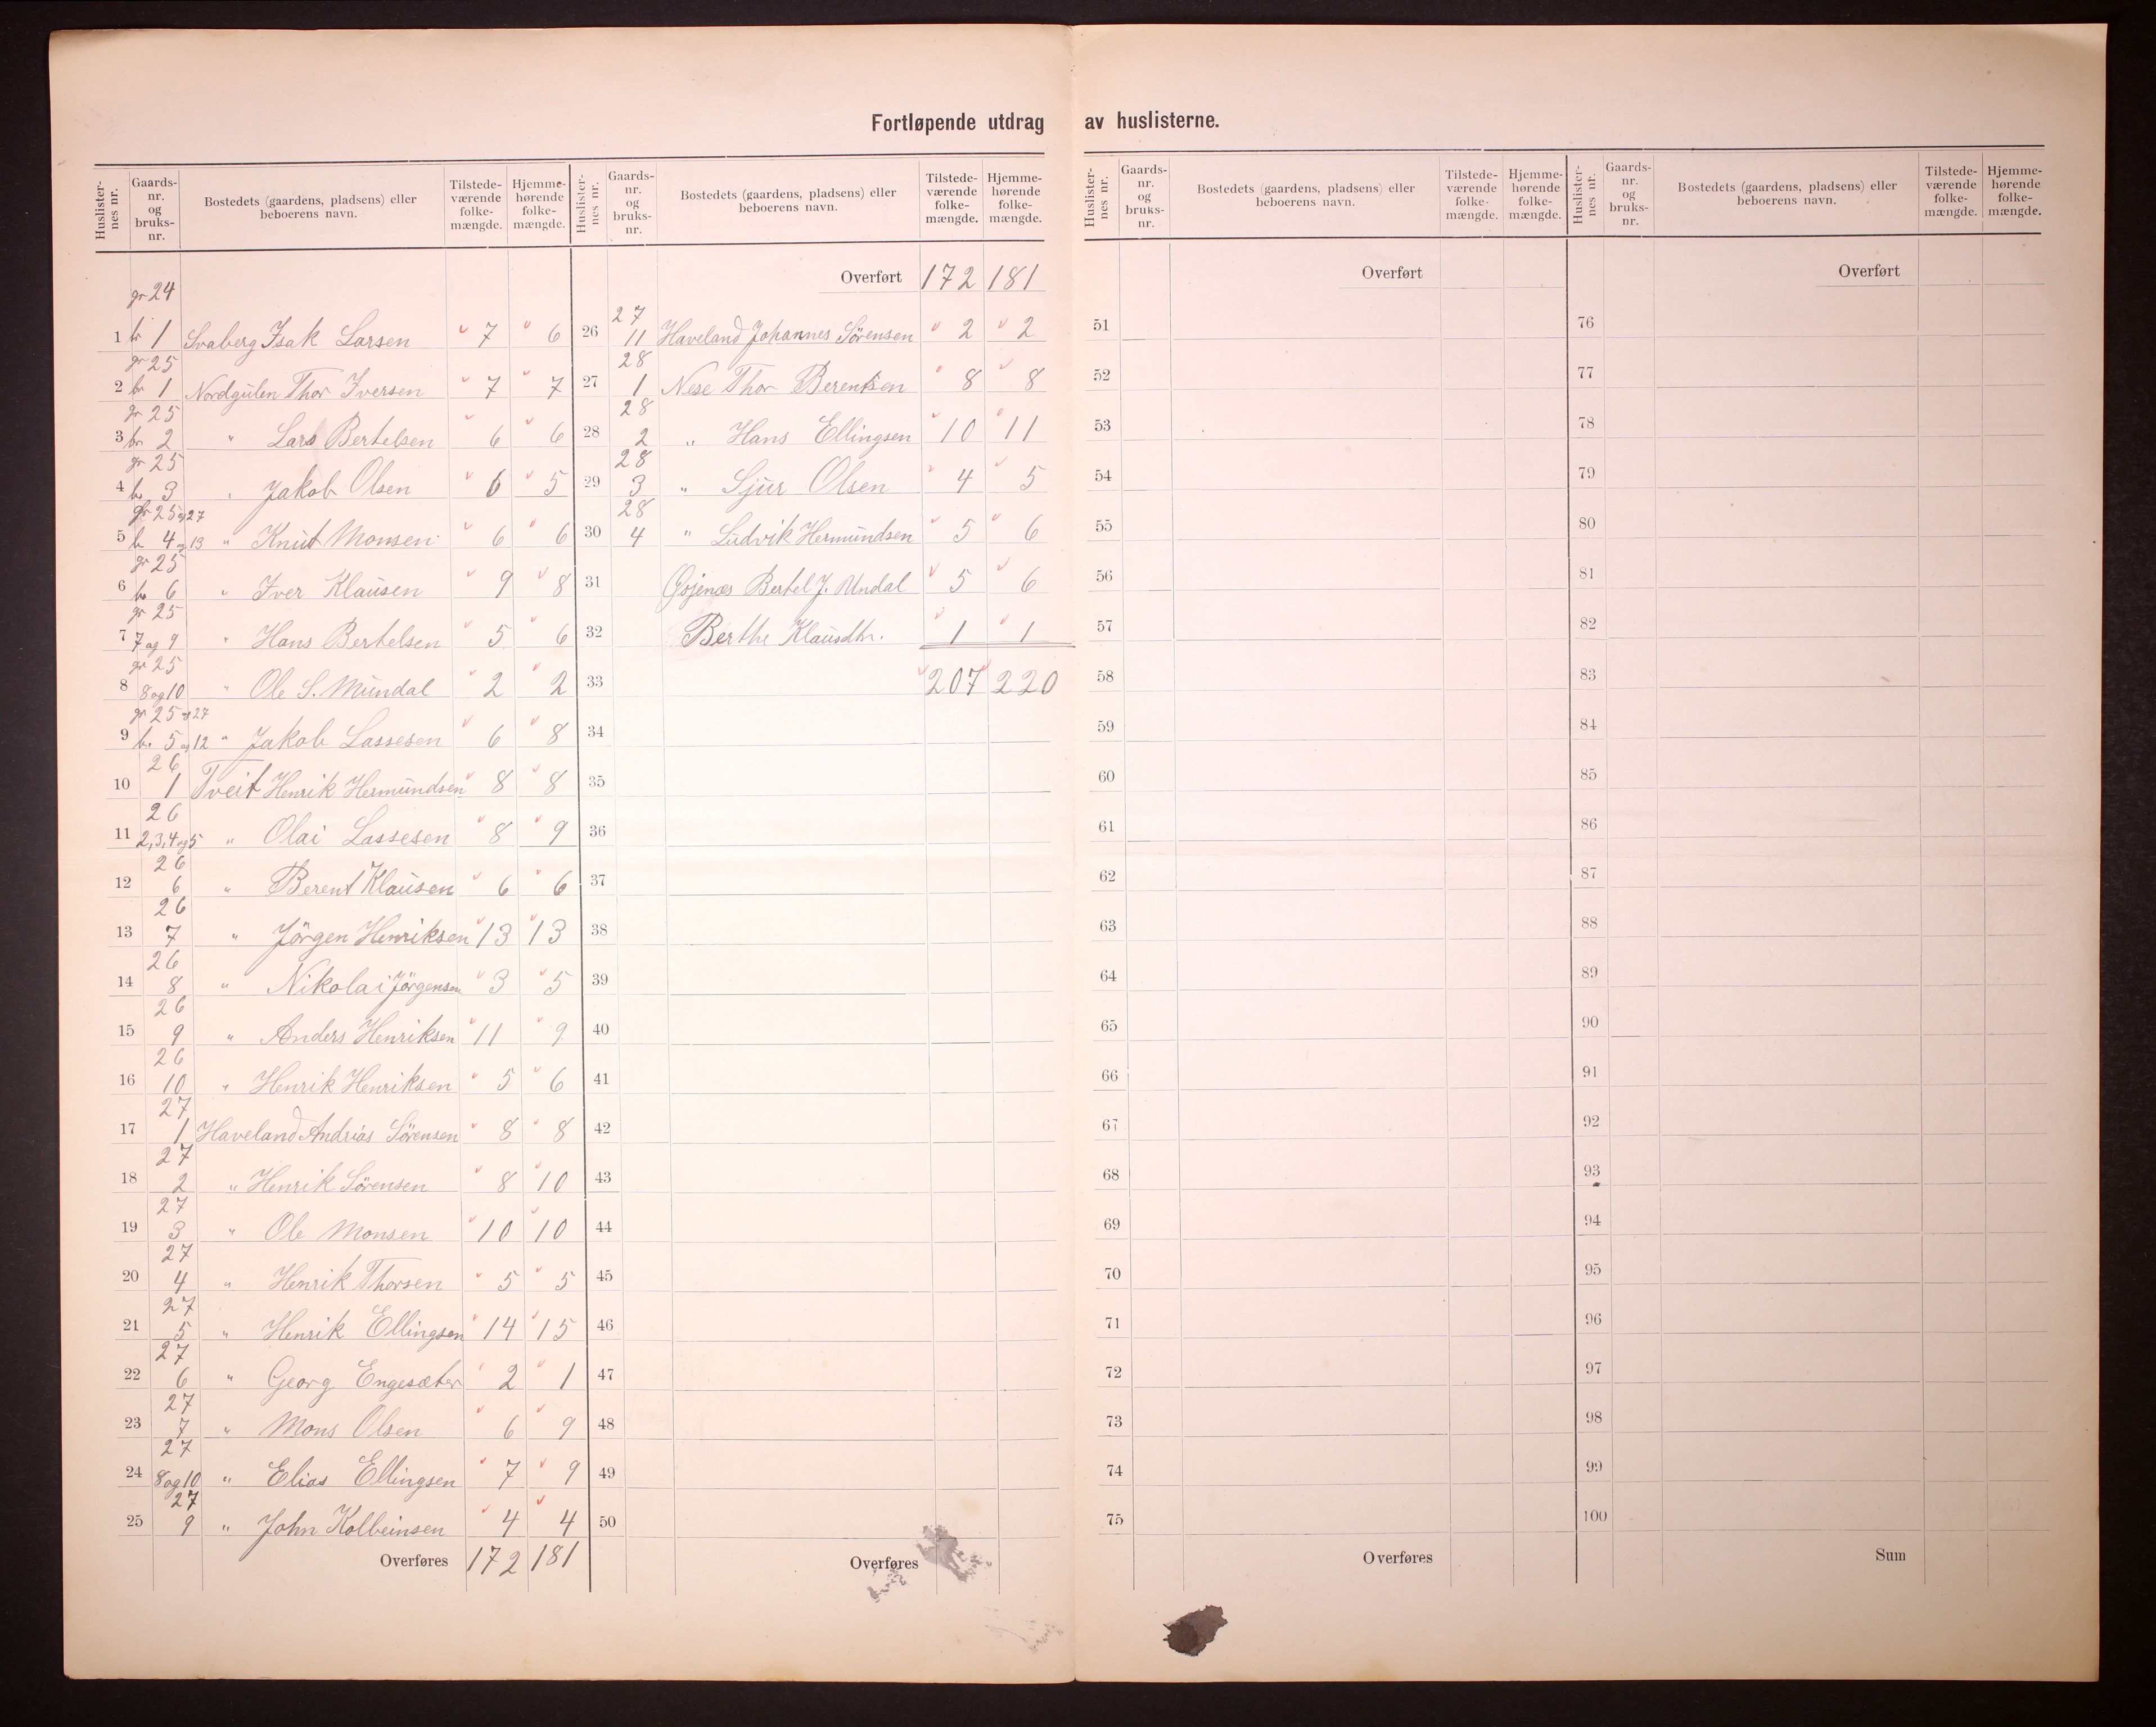 Fortløpende utdrag av huslisterne.
Huslister-nes nr. Gaards-nr. og bruks-nr. Bostedets (gaardens, pladsens) eller beboerens navn. Tilstede-værende folke-mængde. Hjemme-hørende folke-mængde.
gr 24
1 br 1 Svaberg Isak Larsen 7 6
gr 25
2 br 1 Nordgulen Thor Iversen 7 7
gr 25
3 br 2 " Lars Bertelsen 6 6
gr 25
4 br 3 " Jakob Olsen 6 5
gr 25 og 27
5 br 4 og 13 " Knut Monsen 6 6
gr 25
6 br 6 " Iver Klausen 9 8
gr 25
7 7 og 9 " Hans Bertelsen 5 6
gr 25
8 8 og 10 " Ole S. Mundal 2 2
gr 25 og 27
9 br. 5 og 12 " Jakob Lassesen 6 8
26
10 1 Tveit Henrik Hermundsen 8 8
26
11 2,3,4 og 5 " Olai Lassesen 8 9
26
12 6 " Berent Klausen 6 6
26
13 7 " Jörgen Henriksen 13 13
26
14 8 " Nikolai Jörgensen 3 5
26
15 9 " Anders Henriksen 11 9
26
16 10 " Henrik Henriksen 5 6
27
17 1 Haveland Andrias Sörensen 8 8
27
18 2 " Henrik Sörensen 8 10
27
19 3 " Ole Monsen 10 10
27
20 4 " Henrik Thorsen 5 5
27
21 5 " Henrik Ellingsen 14 15
27
22 6 " Georg Engesæter 2 1
27
23 7 " Mons Olsen 6 9
27
24 8 og 10 " Elias Ellingsen 7 9
27
25 9 " John Kolbeinsen 4 4
Overføres 172 181
Huslister-nes nr. Gaards-nr. og bruks-nr. Bostedets (gaardens, pladsens) eller beboerens navn. Tilstede-værende folke-mængde. Hjemme-hørende folke-mængde.
Overført 172 181
27
26 11 Haveland Johannes Sörensen 2 2
28
27 1 Nese Thor Berentsen 8 8
28
28 2 " Hans Ellingsen 10 11
28
29 3 " Sjur Olsen 4 5
28
30 4 " Ludvik Hermundsen 5 6
31 Bertel J. Undal 5 6
32 Berthe Klausdtr. 1 1
33 207 220
34
35
36
37
38
39
40
41
42
43
44
45
46
47
48
49
50
Overføres
Huslister-nes nr. Gaards-nr. og bruks-nr. Bostedets (gaardens, pladsens) eller beboerens navn. Tilstede-værende folke-mængde. Hjemme-hørende folke-mængde.
Overført
51
52
53
54
55
56
57
58
59
60
61
62
63
64
65
66
67
68
69
70
71
72
73
74
75
Overføres
Huslister-nes nr. Gaards-nr. og bruks-nr. Bostedets (gaardens, pladsens) eller beboerens navn. Tilstede-værende folke-mængde. Hjemme-hørende folke-mængde.
Overført
76
77
78
79
80
81
82
83
84
85
86
87
88
89
90
91
92
93
94
95
96
97
98
99
100
Sum